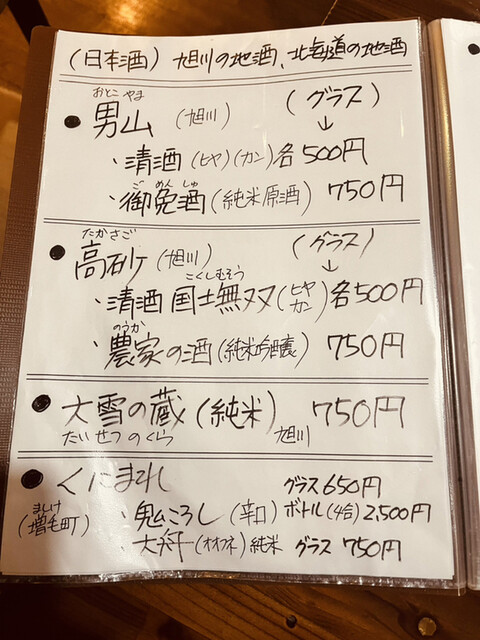 (日本酒) 旭川の地酒、北海道の地酒
おとこ やま
● 男山 (旭川) (グラス)
↓
・清酒 (ヒヤ)(カン) 各500円
ご めん しゅ
・御免酒 (純米原酒) 750円
たかさご
● 高砂 (旭川) (グラス)
こくしむそう ↓
・清酒 国士無双 (ヒヤ カン) 各500円
のうか
・農家の酒 (純米吟醸) 750円
● 大雪の蔵 (純米) 旭川 750円
たいせつ の くら
● くにまれ グラス 650円
ましけ
(増毛町) ・鬼ころし (辛口) ボトル(4合) 2,500円
・(オオフネ) 純米 グラス 750円